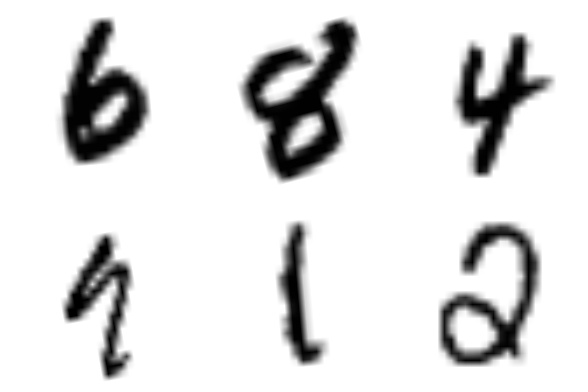 6 8 4
1 2